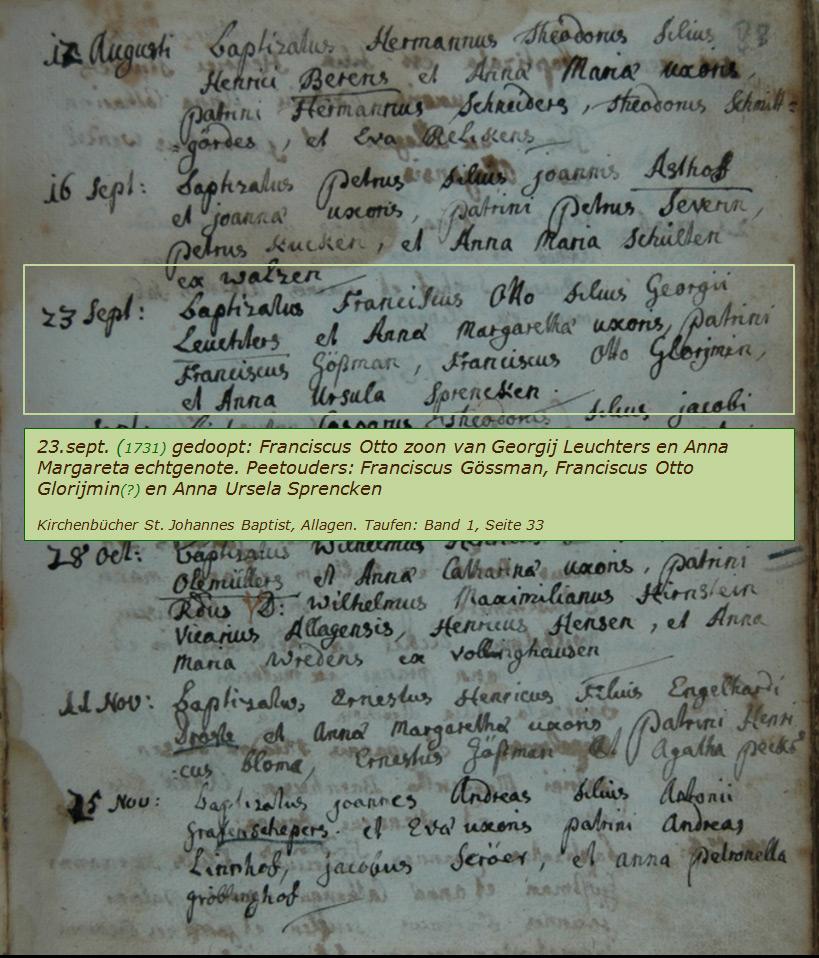 12 Augusti baptizatus Hermannus Theodorus filius
Henrici Berens et Anna Maria uxoris,
patrini Hermannus Schneiders, Theodorus Schmitt=
=gördes, et Eva
16 Sept: baptizatus Petrus filius joannis Asthof
et joanna uxoris, patrini Petrus Severin,
Petrus Kucken, et Anna Maria Schulten
ex walzen
23 Sept: baptizatus Franciscus Otto filius Georgii
Leuchters et Anna Margaretha uxoris, patrini
Franciscus Gößman, Franciscus Otto Glorjmin,
et Anna Ursula Sprencken.
Casparus Theodorus filius jacobi
23.sept. (1731) gedoopt: Franciscus Otto zoon van Georgij Leuchters en Anna
Margareta echtgenote. Peetouders: Franciscus Gössman, Franciscus Otto
Glorijmin(?) en Anna Ursela Sprencken
Kirchenbücher St. Johannes Baptist, Allagen. Taufen: Band 1, Seite 33
28 Oct: baptizatus Wilhelmus Henricus
Olemüllers et Anna Catharina uxoris, patrini
Rdus D: Wilhelmus Maximilianus Hirnstein
Vicarius Allagensis, Henricus Hensen, et Anna
Maria Wredens ex vollinghausen
11 Nov: baptizatus, Ernestus Henricus Filius Engelhardi
Droste et Anna Margaretha uxoris patrini Henri
cus bloma, Ernestus Gößman et Agatha
25 Nov: baptizatus joannes Andreas filius Antonii
grafenschepers. et Eva uxoris patrini Andreas
Linnhof, jacobus Schröer, et anna petronella
gröblinghof